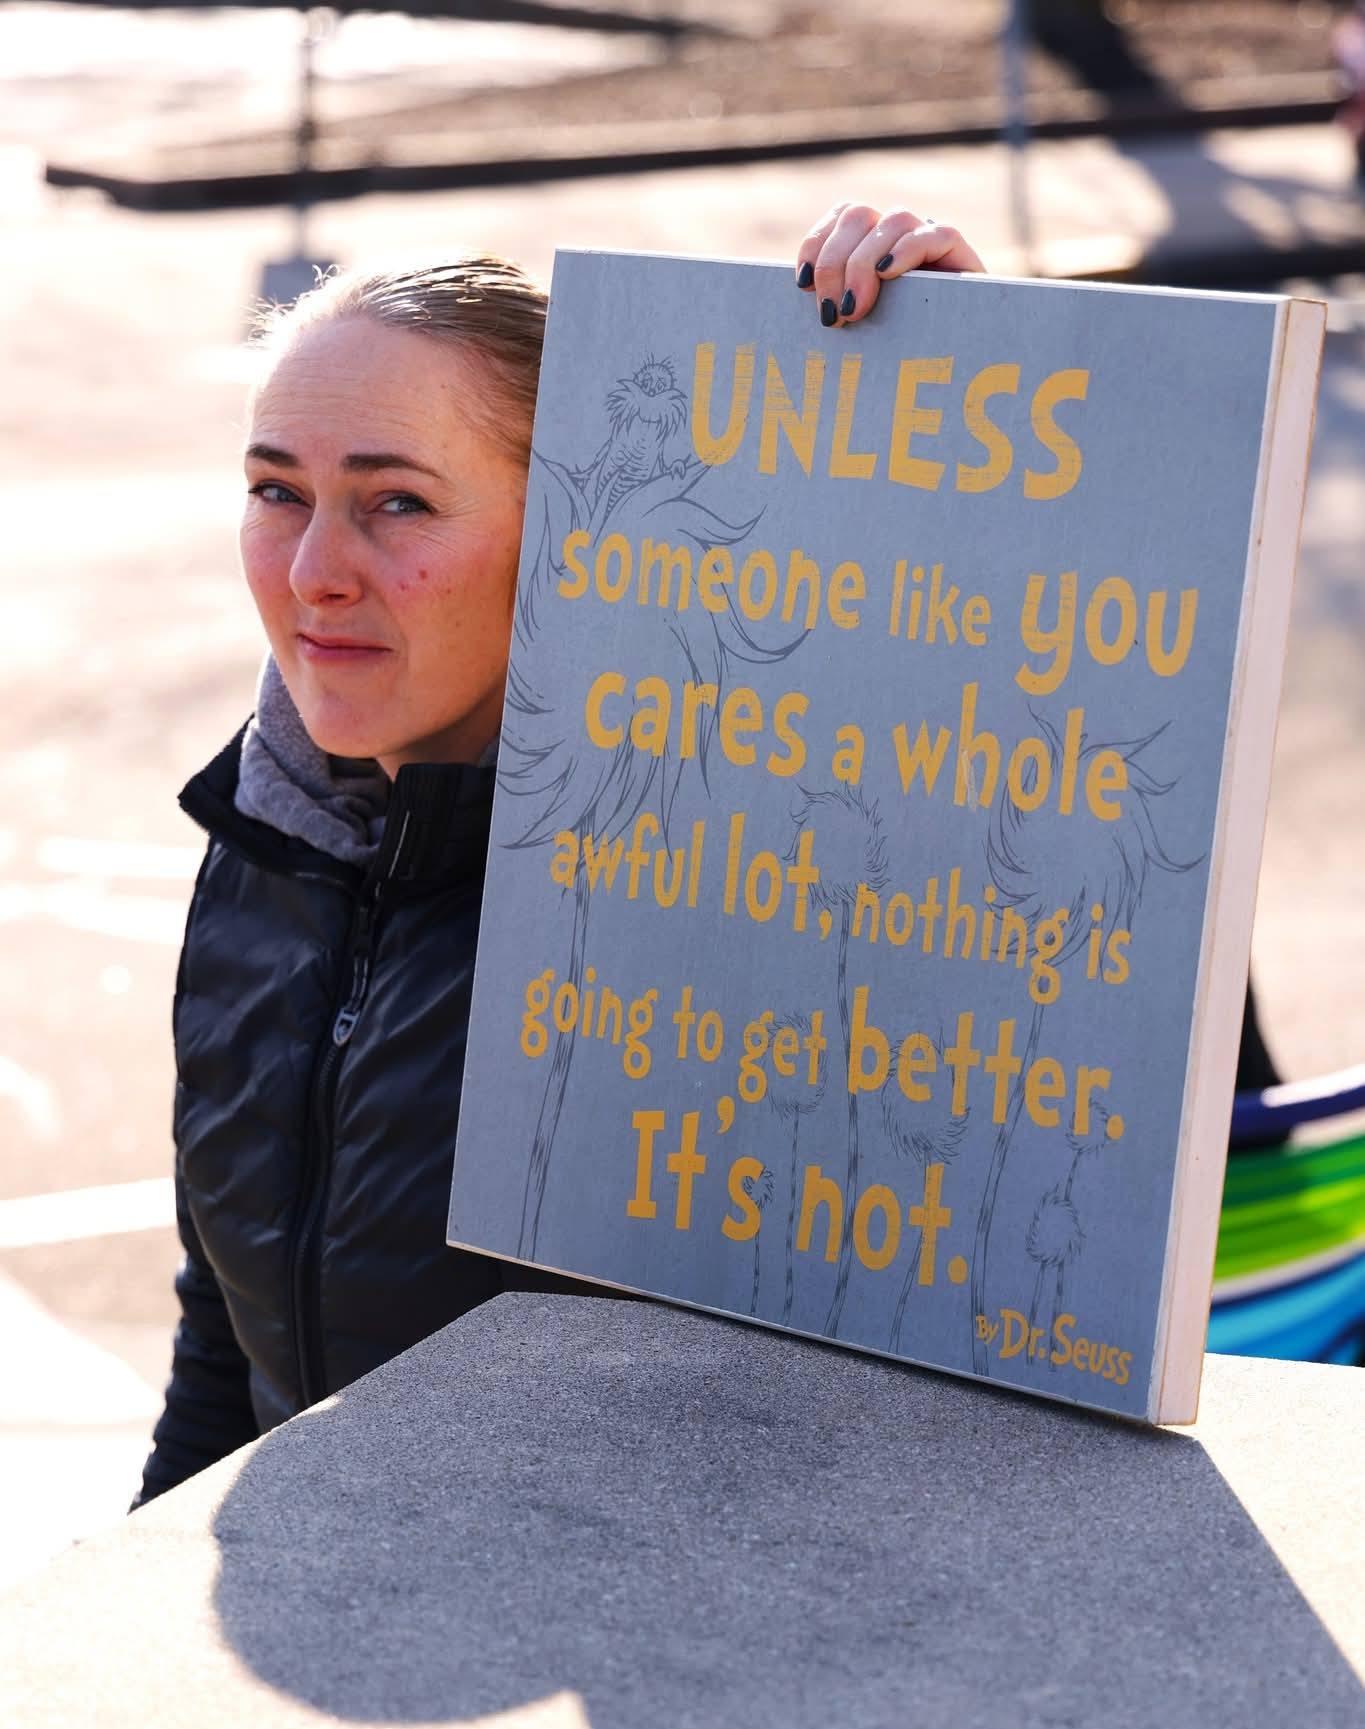 UNLESS
someone like you
cares a whole
awful lot, nothing is
going to get better.
It's not.
By Dr. Seuss